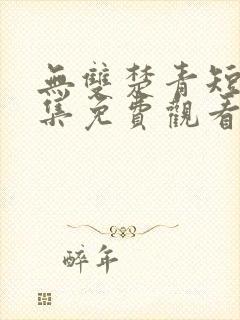 無雙楚青短
集免費觀看
醉年